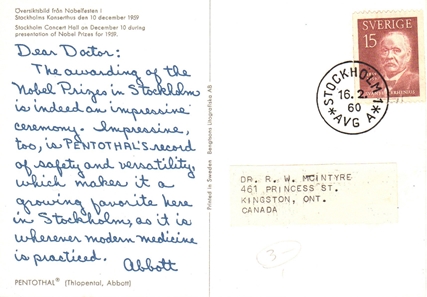 Översiktsbild från Nobelfesten i
Stockholms Konserthus den 10 december 1959
Stockholm Concert Hall on December 10 during
presentation of Nobel Prizes for 1959.
Dear Doctor:
The awarding of the
Nobel Prizes in Stockholm
is indeed an impressive
ceremony. Impressive,
too, is PENTOTHAL'S record
of safety and versatility
which makes it a
growing favorite here
in Stockholm, as it is
wherever modern medicine
is practiced.
Abbott
PENTOTHAL® (Thiopental, Abbott)
Printed in Sweden
Esselte
SVERIGE
15
STOCKHOLM 1
16.2.
60
AVG A
DR. R. W. MCINTYRE
461 PRINCESS ST.
KINGSTON, ONT.
CANADA
3-